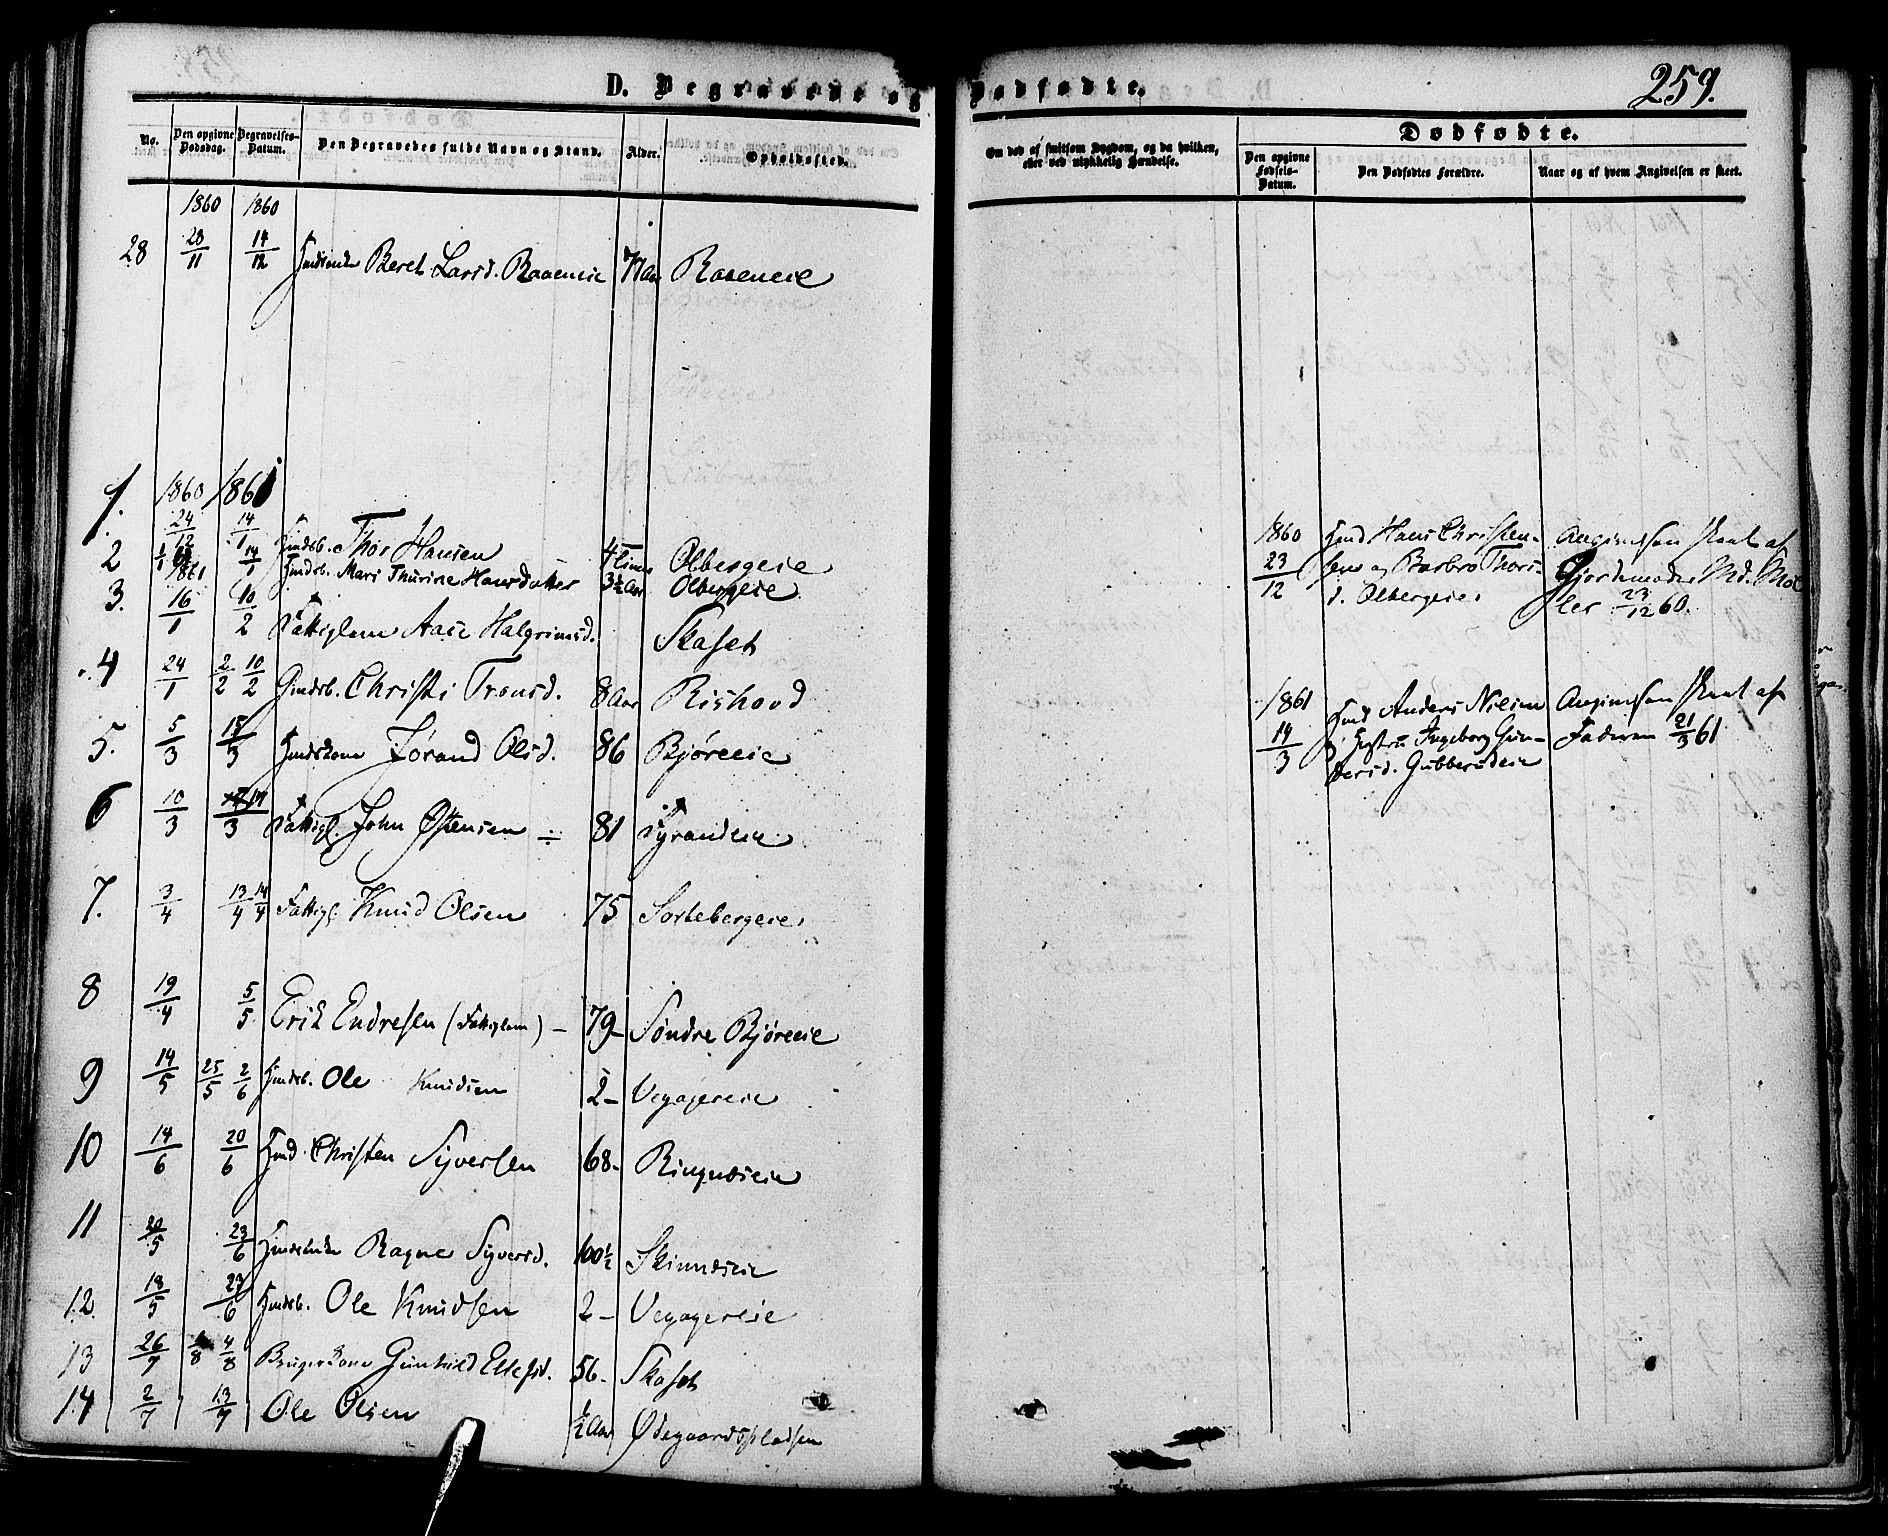 D. Begravede og Dødfødte.
259.
No.
Den opgivne Dødsdag.
Begravelses-Datum.
Den Begravedes fulde Navn og Stand.
Alder.
Opholdssted.
Om død af smitsom Sygdom, og da hvilken,
eller ved ulykkelig Hændelse.
Dødfødte.
Den opgivne Fødsels-Datum.
Den Dødfødtes Forældre.
Naar og af hvem Angivelsen er skeet.
1860 1860
28 28/11 14/12 Beret Larsd. Raaeneie 71 Aar Raaeneie
1. 1860 1861
24/12 14/1 Huusb. Thor Hansen 4 Timer Olbergeie
2 14/1 Huusb. Mari Thurine Hansdatter 3½ Aar Olbergeie
1861
3. 16/1 10/2 Fattiglem Aase Halgrimsd. Skaset
4 24/1 2/2 10/2 Gmdsb. Christi Tronsd. 8 Aar Rishovd
5. 5/3 15/3 Huuskone Jørand Olsd. 86 Bjøreeie
6 10/3 14/3 Fattigl. John Østensen ÷ 81
7. 3/4 13/4 14/4 Fattigl. Knud Olsen 75 Sortebergeie
8 19/4 5/5 Erik Endresen (Fattiglem) – 79 – Søndre Bjøreeie
9 14/5 25/5 2/6 Huusb. Ole Knudsen 2 –
10 14/6 20/6 Huusmd. Christen Syversen 68 –
11 20/5 23/6 Ragne Syversd. 100½
12. 18/5 23/6 Huusb. Ole Knudsen 2 –
13 26/7 4/8 Brugerkone Gunhild Ellefsd. 56 – Skaset
14 2/7 13/7 Ole Olsen ½ Aar Ødegaardspladsen
1860
23/12
Hmd Hans Christen-
sen og Barbro Thors-
d. Olbergeie
Angivelsen skeet af
Gjordemoder Md. Møl
ler 23/12 60.
1861
14/3
Hmd Anders Nilsen
og Hustru Ingeborg Gun-
dersd.
Angivelsen skeet af
Faderen 21/3 61